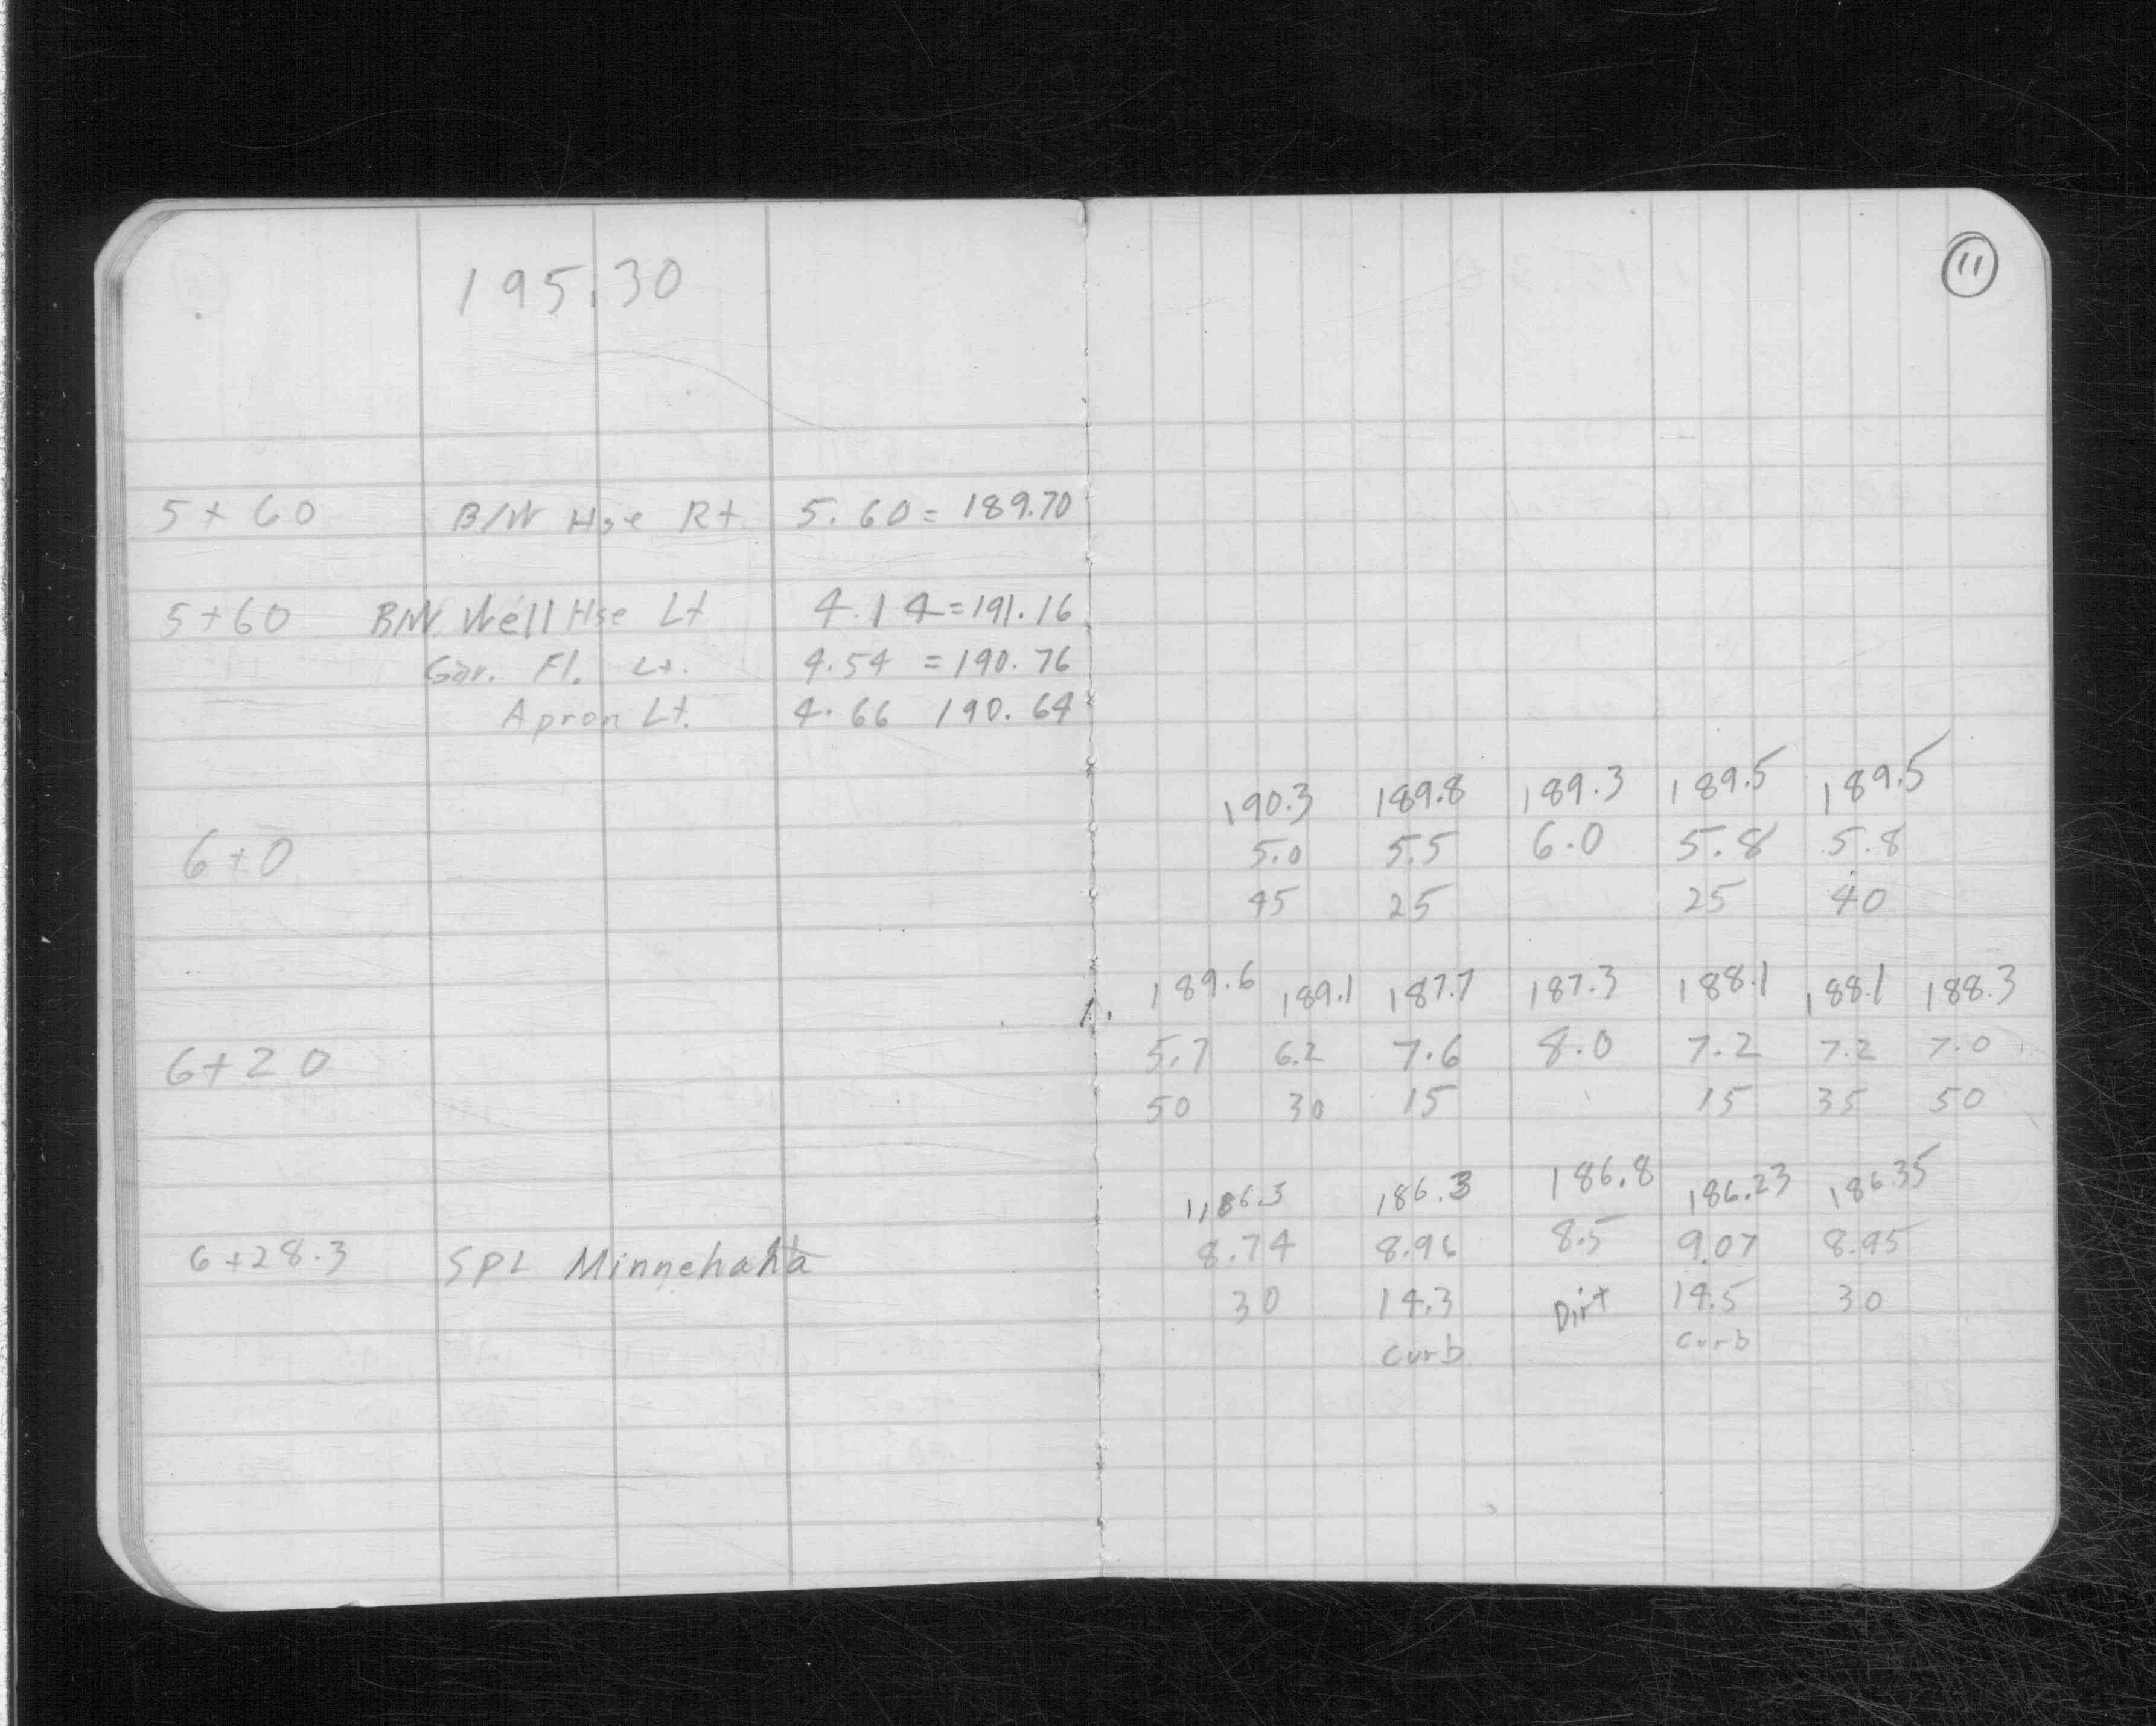 195.30
11
5+60 B/W Hse Rt 5.60 = 189.70
5+60 B/W Well Hse Lt 4.14 = 191.16
Gar. Fl. Lt. 4.54 = 190.76
Apron Lt. 4.66 190.64
190.3 189.8 189.3 189.5 189.5
6+0 5.0 5.5 6.0 5.8 5.8
45 25 25 40
189.6 189.1 187.7 187.3 188.1 188.1 188.3
6+20 5.7 6.2 7.6 8.0 7.2 7.2 7.0
50 30 15 15 35 50
186.5 186.3 186.8 186.23 186.35
6+28.3 SPL Minnehaha 8.74 8.96 8.5 9.07 8.95
30 14.3 Dirt 14.5 30
curb curb